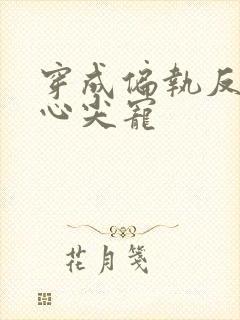 穿成偏執反
心尖寵
花月箋